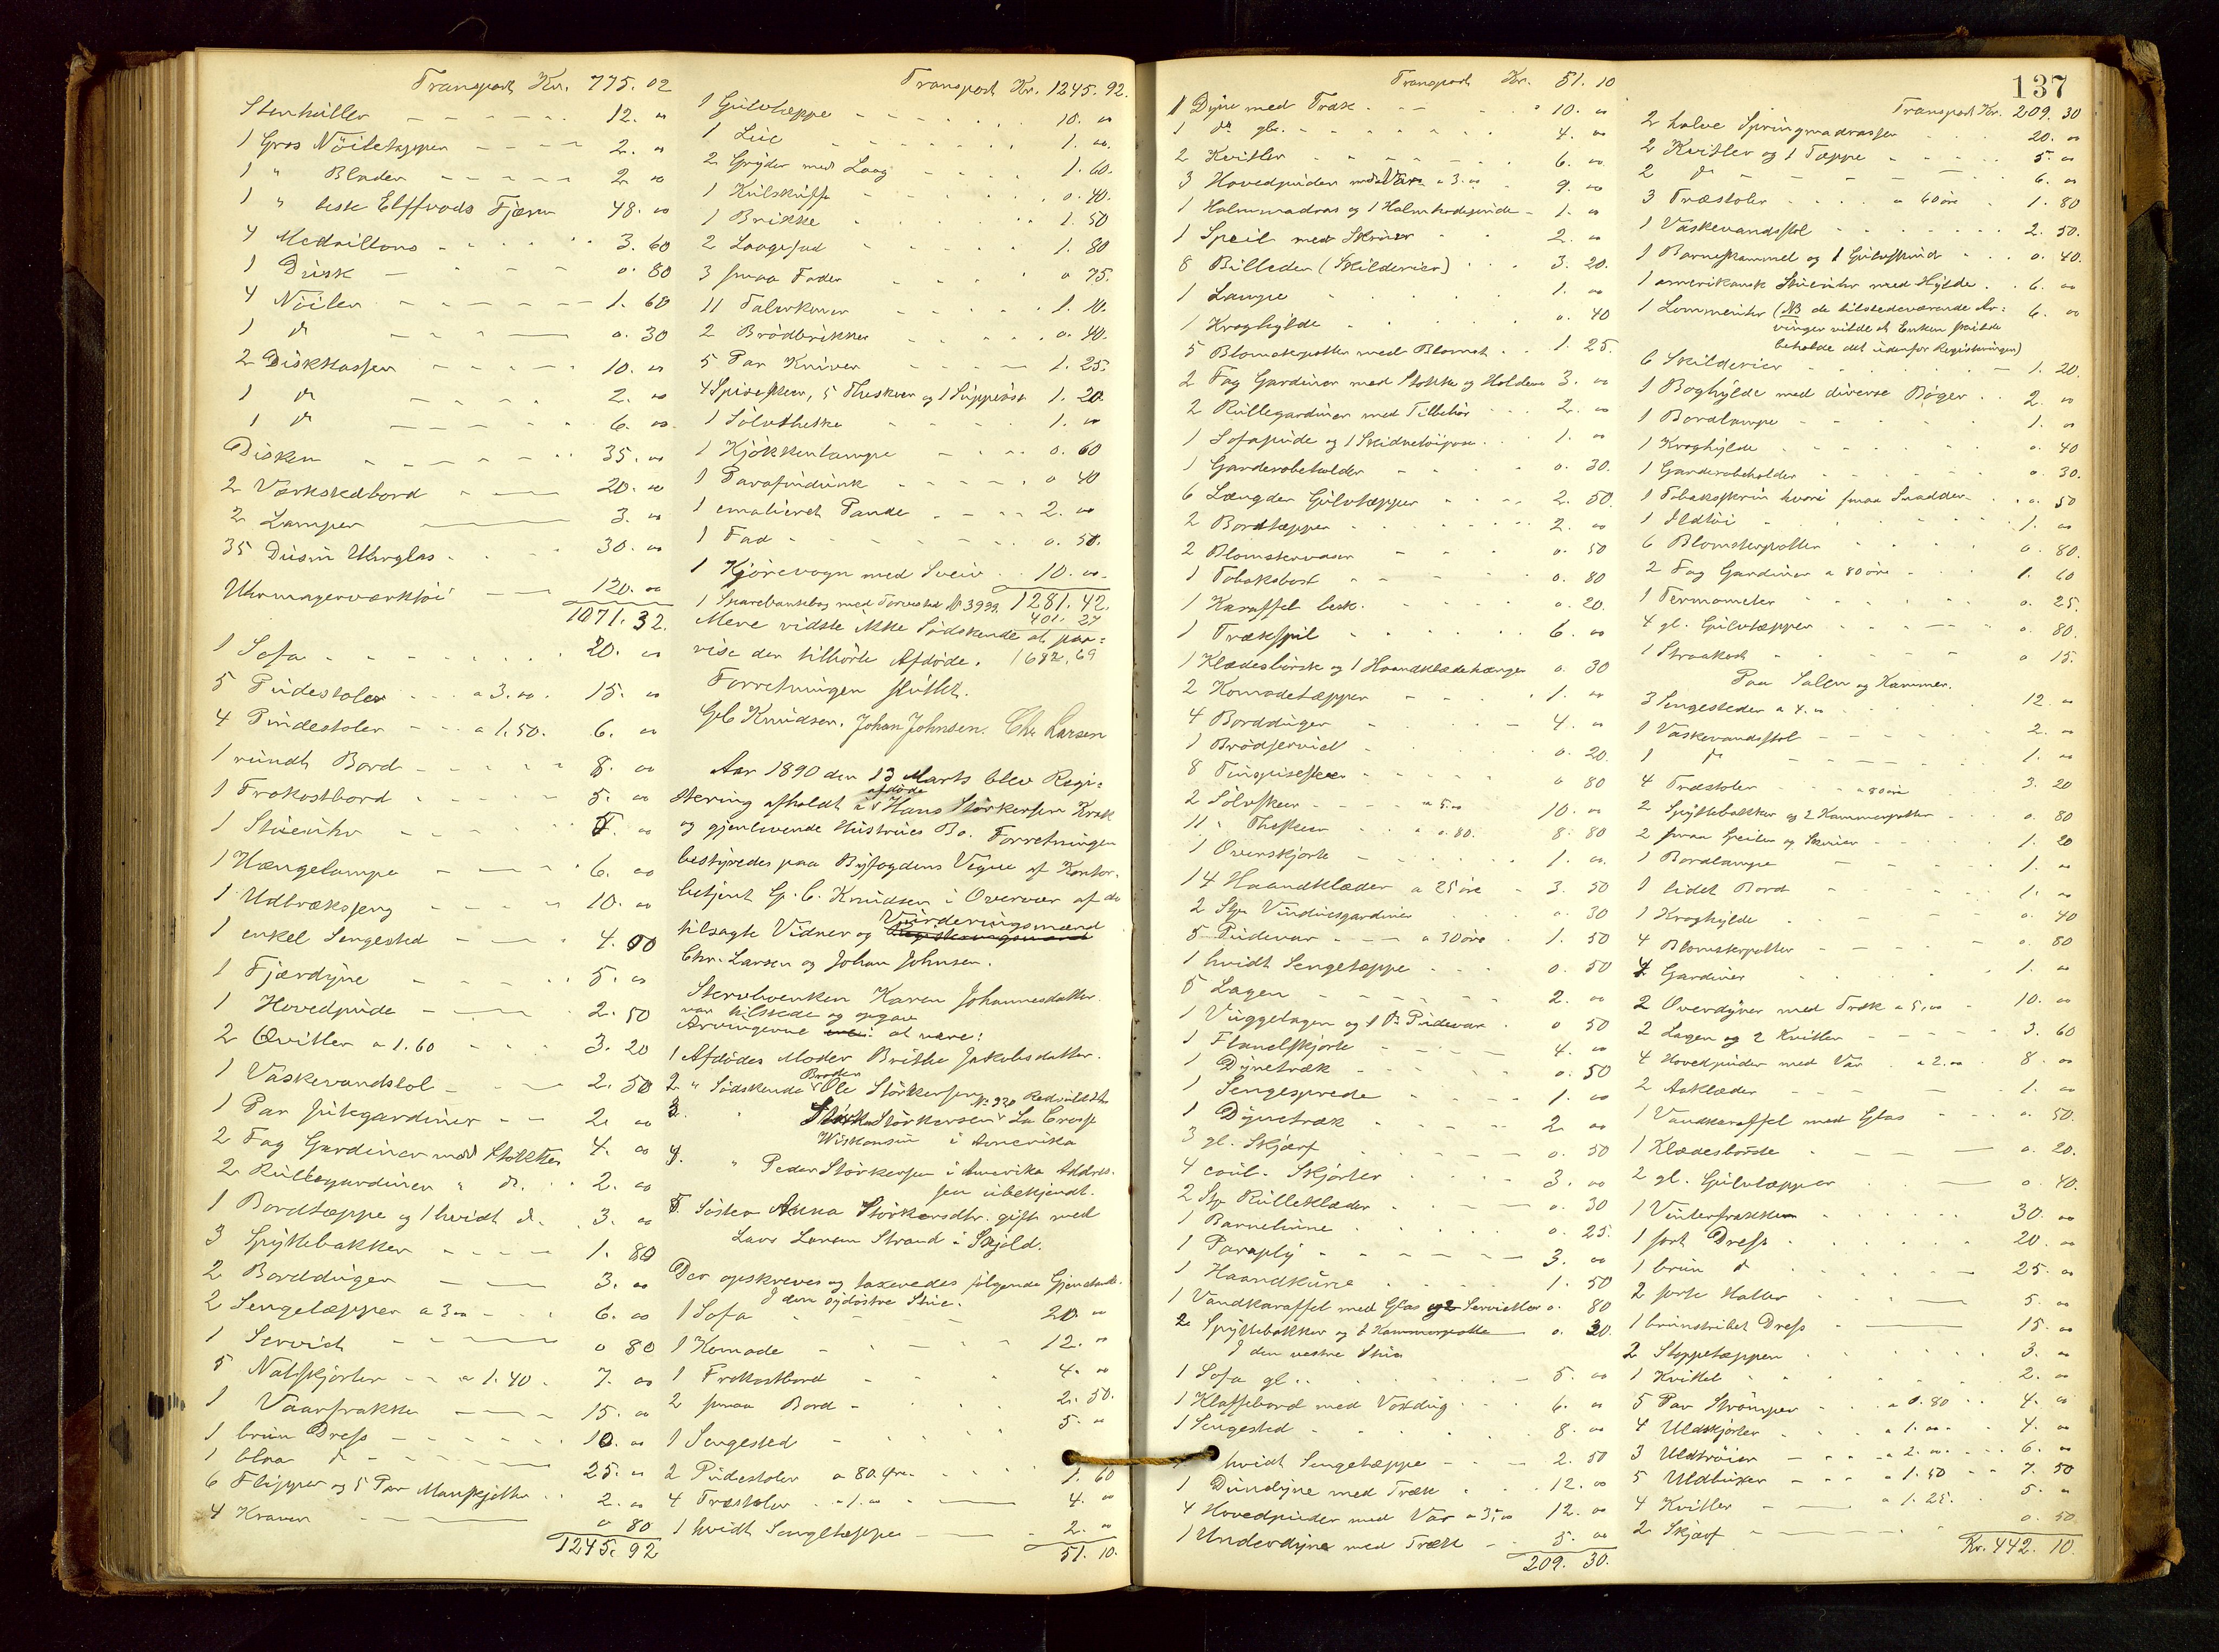 Transport Kr. 775. 02
Stenhuller 12. "
1 Gros Nöiletapper 2. "
1 " Blader 2. "
1 " 48. "
4 3. 60
1 Dusk 0. 80
4 Nöiler 1. 60
1 do 0. 30
2 Diskkasser 10. "
1 do 2. "
1 do 6. "
Disken 35. "
2 Værkstedbord 20. "
2 Lamper 3. "
35 Dusin Uhrglas 30. "
Uhrmagerværktöi 120. "
1071. 32.
1 Sofa 20. "
5 Pudestoler a 3. " 15. "
4 Pindestoler a 1. 50. 6. "
1 rundt Bord 8. "
1 Frokostbord 5. "
1 Stueuhr 5. "
1 Hængelampe 6. "
1 Udtræksseng 10. "
1 enkel Sengested 4. 00
1 Fjærdyne 5. "
1 Hovedpude 2. 50
2 Qvitler a 1. 60 3. 20
1 Vaskevandstol 2. 50
1 Par Jutegardiner 2. "
2 Fag Gardiner med Stokker 4. "
2 Rullegardiner " do. 2. "
1 Bordtæppe og 1 hvidt do. 3. "
3 Spyttebakker 1. 80
2 Bordduger 3. "
2 Sengetæpper a 3 " 6. "
1 Servich 0 80
5 Natskjorter a 1. 40. 7. "
1 Vaarfrakke 15. "
1 brun Dress 10. "
1 blaa do 25. "
6 Flipper og 5 Par Manskjetter 2. "
4 Kraver 0 80
1245. 92
Transport Kr. 1245. 92.
1 Gulvtæppe 10. "
1 Lue 1. "
2 Gryder med Laag 1. 60.
1 Kulskuffe 0. 40.
1 Brikke 1. 50
2 Laagefad 1. 80
3 smaa Fader 0 75.
11 Talerkener 1. 10.
2 Brödbrikker 0. 40.
5 Par Kniver 1. 25.
4 Spiseskeer, 5 Theskeer og 1 Suppeöse 1. 20.
1 Sölvtheske 1. "
1 Kjökkenlampe 0. 60
1 Parafindunk 0 40
1 emalieret Pande 2. "
1 Fad 0. 50.
1 Kjörevogn med Sveiv 10. "
1281. 42.
1 Sparebanksbog med Torvestad No 3999. 401. 27
Mere vidste ikke Södskende at paa-
vise der tilhörte Afdöde. 1682, 69
Forretningen sluttet.
G C Knudsen. Johan Johnsen. Chr Larsen
Aar 1890 den 13 Marts blev Regi-
stering afholdt i afdöde Hans Störkersen Krok
og gjenlevende Hustrues Bo. Forretningen
bestyredes paa Byfogdens Vegne af Kontor-
betjent G. C. Knudsen i Overvær af de
tilsagte Vidner og Vurderingsmænd Registeringsmænd
Chr. Larsen og Johan Johnsen.
Stervboenken Karen Johannesdatter
var tilstede og opgav
Arvingerne at være:
1 Afdödes Moder Brithe Jakobsdatter.
2 " Södskende Broder Ole Störkersen
3. " Störk Störkersen No 320 La Crosse
Wiskonsin i Amerika
4. " Peder Störkersen i Amerika Addres-
sen ubekjendt.
5. Söster Anna Störkersdtr. gift med
Lars Larsen Strand i Skjold.
Der opskreves og taxeredes fölgende Gjenstande.
I den sydöstre Stue.
1 Sofa 20. "
1 Komode 12. "
1 Frokostbord 4. "
2 smaa Bord 2. 50.
1 Sengested 5. "
2 Pudestoler a 80 Öre 1. 60
4 Træstoler a 1. " 4. "
1 hvidt Sengetæppe 2. "
51. 10.
Transport Kr. 51. 10
1 Dyne med Træk 10. "
1 do gl. 4. "
2 Kvitler 6. "
3 Hovedpuder med Var a 3. " 9. "
1 Halmmadras og 1 Halmhodepude 1. "
1 Speil med Skruer 2. "
8 Billeder (Skilderier) 3. 20.
1 Lampe 1. "
1 Kroghylde 0. 40
5 Blomsterpotter med Blomst 1. 25.
2 Fag Gardiner med Stokke og Holdere 3. "
2 Rullegardiner med Tilbehör 2. "
1 Sofapude og 1 Skidnetöipose 1. "
1 Garderobeholder 0. 30.
6 Længder Gulvtæpper 2. 50.
2 Bordtæpper 2. "
2 Blomstervaser 0. 50
1 Tobaksbost 0. 80
1 Karaffel besk. 0. 20.
1 Trækspil 6. "
1 Klædesbörste og 1 Haandklædehænger 0. 30
2 Komodetæpper 1. "
4 Bordduger 4. "
1 Brödserviet 0. 20.
8 Tinspiseskeer 0 80
2 Sölvskeer a 5. " 10. "
11 " Theskeer a 0. 80. 8. 80
1 Overskjorte 1. "
14 Haandklæder a 25 öre 3. 50
2 Stk Vinduesgardiner 0. 30
5 Pudevar a 30 öre 1. 50
1 hvidt Sengetæppe 0. 50
5 Lagen 2. "
1 Vuggelagen og 1 do Pudevar 0 50
1 Flanelskjorte 4. "
1 Dynetræk 0. 50
1 Sengesprede 1. "
1 Dynetræk 2. "
3 gl. Skjærf 0. 50
4 coul. Skjorter 3. "
2 Stk Rulleklæder 0. 30
1 Barnehuue 0. 25.
1 Paraply 3. "
1 Haandkurv 1. 50
1 Vandkaraffel med Glas og 2 Servietter 0. 80
2 Spyttebakker og 1 Kammerpotte 0. 30.
I den vestre Stue
1 Sofa gl. 5. "
1 Klaffebord med Voxdug 6. "
1 Sengested 8. "
1 hvidt Sengetæppe 2. 50
1 Dundyne med Træk 12. "
4 Hovedpuder med Var a 3, " 12. "
1 Underdyne med Træk 5. "
209. 30.
137
Transport Kr. 209. 30
2 halve Springmadrasser 20. "
2 Kvitler og 1 Tæppe 5. "
2 do 6. "
3 Træstoler a 60 öre 1. 80
1 Vaskevandsstol 2. 50.
1 Barneskammel og 1 Gulvskind 0. 40.
1 amerikansk Stueuhr med Hylde 6. "
1 Lommeuhr (NB de tilstedeværende Ar- 6. "
vinger vilde at Enken skulde
beholde det udenfor Registeringen)
6 Skilderier 1. 20.
1 Boghylde med diverse Böger 2. "
1 Bordlampe 1. "
1 Kroghylde 0. 40
1 Garderobeholder 0. 30.
1 Tobaksskrin hvori smaa Snadder 0. 50
1 Ildtöi 1. "
6 Blomsterpotter 0. 80.
2 Fag Gardiner a 80 öre 1. 60
1 Termometer 0. 25.
4 gl. Gulvtæpper 0. 80.
1 Straakost 0 15.
Paa Salen og Kammer.
3 Sengesteder a 4. " 12. "
1 Vaskevandsstol 2. "
1 do 1. "
4 Træstoler a 80 öre 3. 20
2 Spyttebakker og 2 Kammerpotter 0. 80
2 smaa Speiler og Skruer 1. 20
1 Bordlampe 1. "
1 lidet Bord 1. "
1 Kroghylde 0. 40
4 Blomsterpotter 0. 80
4 Gardiner 1. "
2 Overdyner med Træk a 5, " 10. "
2 Lagen og 2 Kvitler 3. 60
4 Hovedpuder med Var a 2. " 8. "
2 Aaklæder 1. "
1 Vandkaraffel med Glas 0. 50.
1 Klædesbörste 0. 20.
2 gl. Gulvtæpper 0. 40.
1 Vinterfrakke 30. "
1 sort Dress 20. "
1 brun do 25. "
2 sorte Hatter 5. "
1 brunstribet Dress 15. "
2 Stoppetæpper 3. "
1 Kvittel 2. "
5 Par Strömper a 0. 80 4. "
4 Uldskjorter a 1. " 4. "
3 Uldtröier a 2. " 6. "
5 Uldbuxer a 1. 50 7. 50
4 Kvitler a 1. 25. 5. "
2 Skjærf 0. 50
Kr. 442. 10.